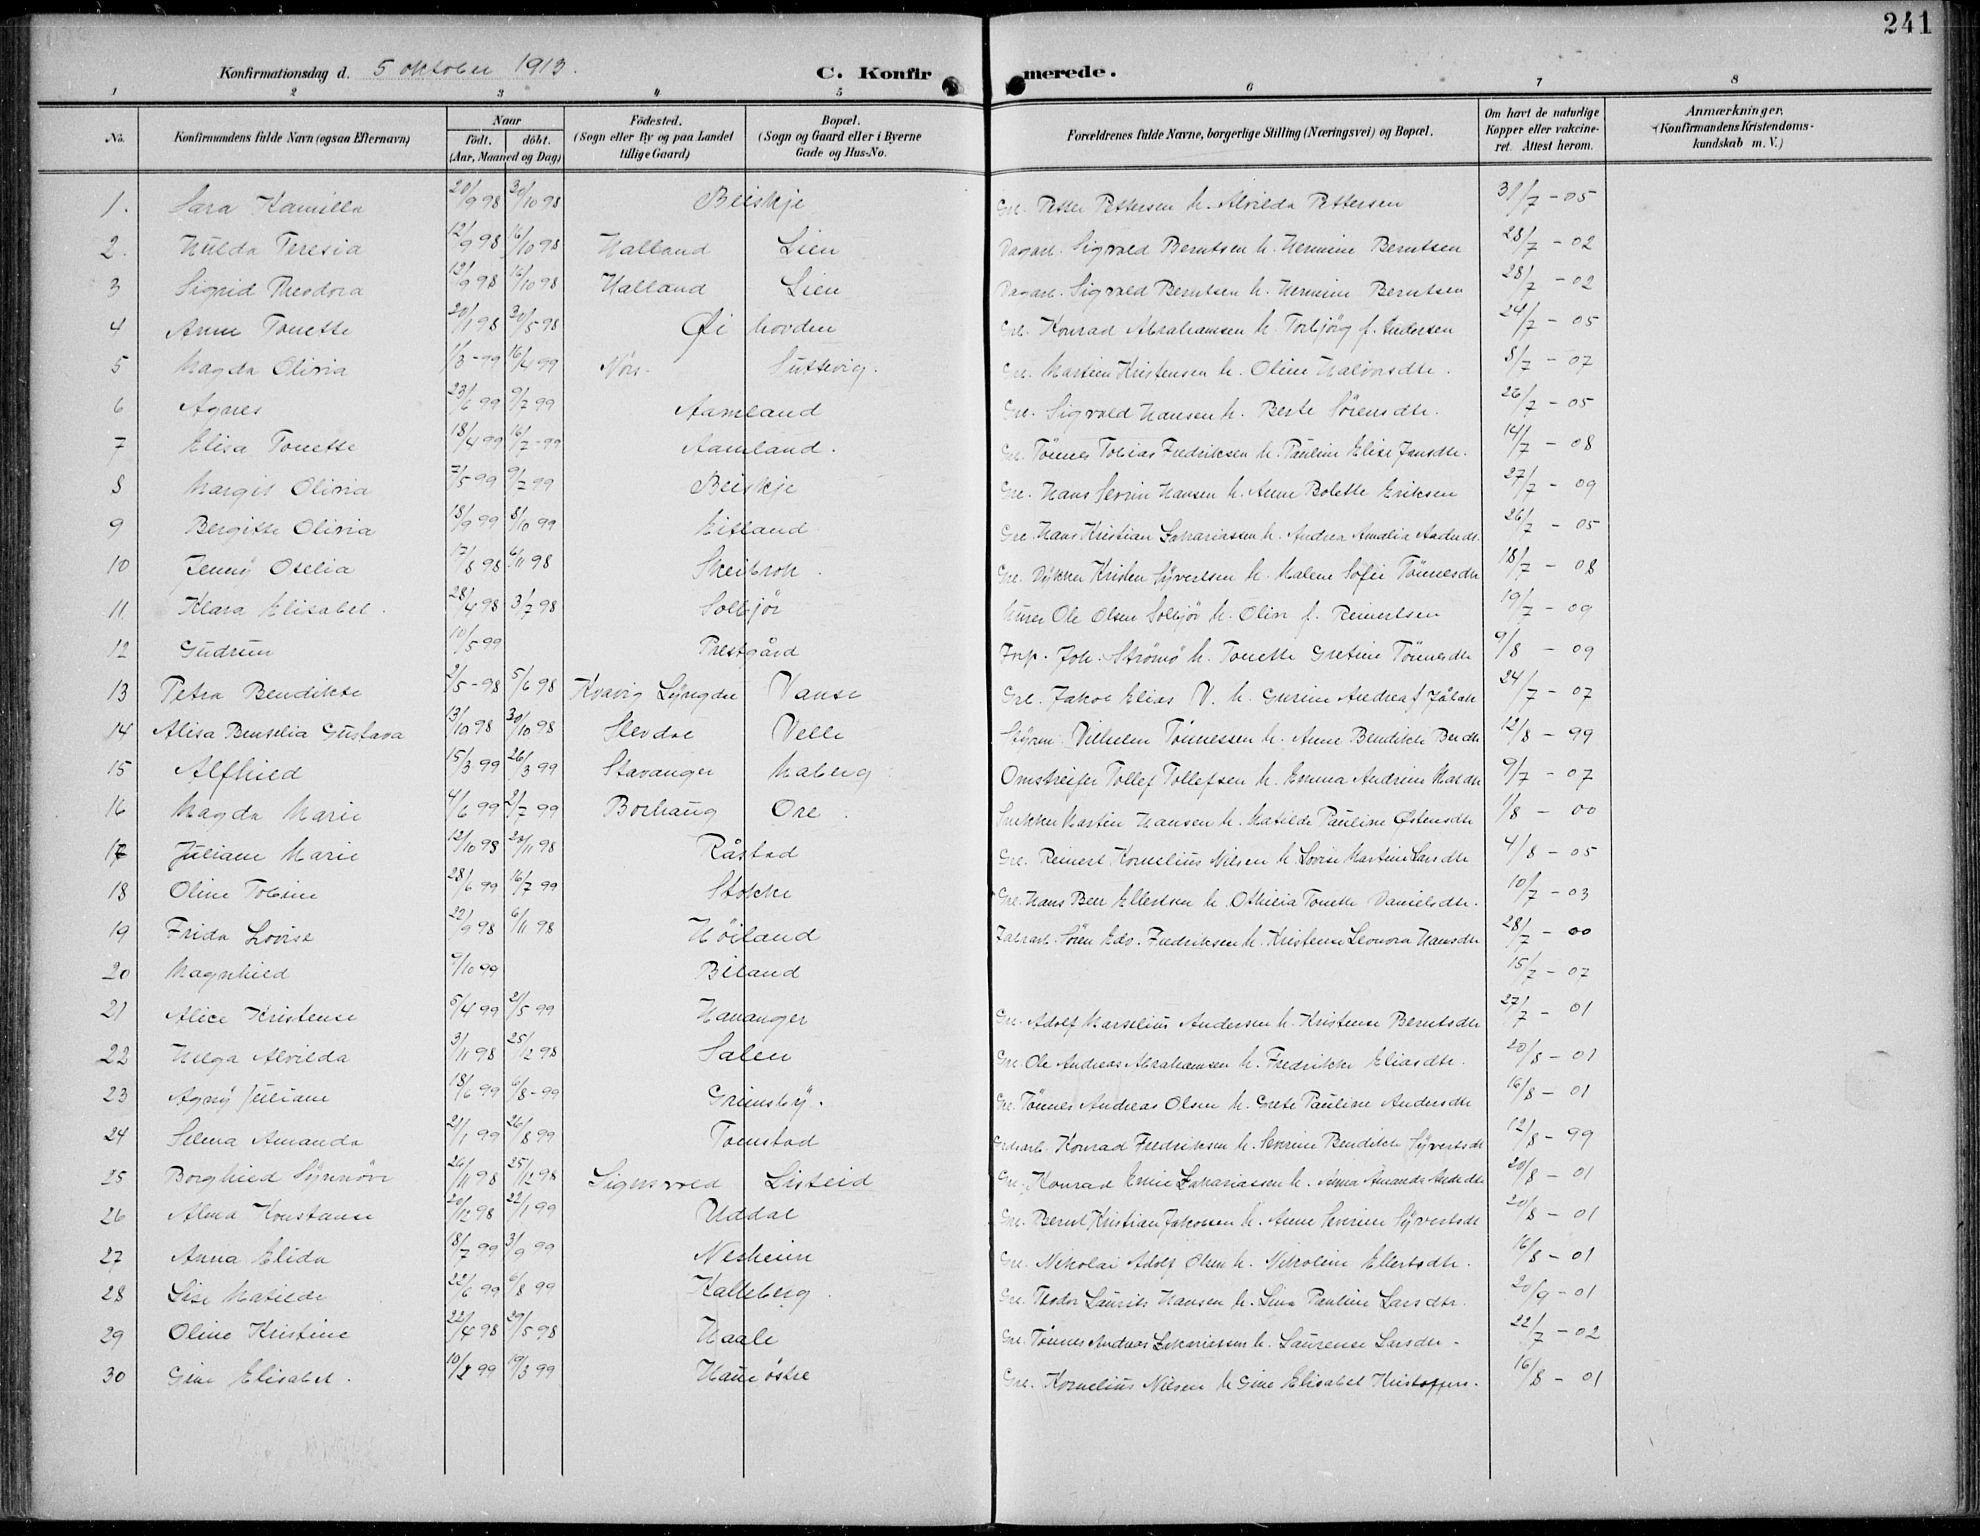 241
Konfirmationsdag d. 5 oktober 1913. C. Konfirmerede.
1 2 3 4 5 6 7 8
No. Konfirmandens fulde Navn (ogsaa Efternavn) Naar Födt. döbt. (Aar, Maaned og Dag) Födested. (Sogn eller By og paa Landet tillige Gaard) Bopæl. (Sogn og Gaard eller i Byerne Gade og Hus-No. Forældrenes fulde Navne, borgerlige Stilling (Næringsvei) og Bopæl. Om havt de naturlige Kopper eller vakcineret. Attest herom. Anmærkninger, (Konfirmandens Kristendomskundskab m. V.)
1. Sara Kamilla 20/9 98 30/10 98 Beiskje Gre. Petter Pettersen h. Alvilda Pettersen 31/7 - 05
2. Hulda Teresia 12/9 98 16/10 98 Halland Lien Dagarb. Sigvald Berntsen h. Hermine Berntsen 28/7 - 02
3 Sigrid Theodora 12/9 98 16/10 98 Halland Lien Dagarb. Sigvald Berntsen h. Hermine Berntsen 28/7 - 02
4 Anne Tonette 20/1 98 30/5 98 Øi hovden Gre. Konrad Abrahamsen h. Torbjörg f. Andersen 24/7 - 05
5 Magda Olivia 1/3 - 99 16/4 99 Nös- Suttevig. Gre. Martin Kristensen h. Oline Halvorsdtr. 8/7 - 07
6 Agnes 23/6 99 9/7 99 Aamland Gre. Sigvald Hansen h. Berte Sörensdtr. 26/7 - 05
7 Elisa Tonette 18/4 99 16/7 - 99 Aamland. Gre. Tönnes Tobias Fredriksen h. Pauline Elise Jansdtr. 14/7 - 08
8 Margit Olivia 7/5 99 9/7 99 Beiskje Gre. Hans Severin Hansen h. Anne Bolette Eriksen 27/7 - 09
9 Bergitte Olivia 18/9 99 8/10 99 Eitland Gre. Hans Kristian Sakariassen h. Andrea Amalia Aadendtr. 26/7 - 05
10 Jenny Otelia 17/8 98 6/11 98 Skeibrok. Gre. Dykker Kristen Syvertsen h. Malene Sofie Tönnesdtr 18/7 - 08
11. Klara Elisabet. 28/4 98 3/7 98 Solbjör Murer Ole Olsen Solbjör h. Olive f. Reinertsen 19/7 - 09
12 Gudrun 10/5 99 Prestgård Forp. Joh. Strömö h. Tonette Gretine Tönnesdtr 9/8 - 09
13 Petra Bendikte 2/5 - 98 5/6 98 Kvavig Lyngdal Vanse Gre. Jakob Elias V. h. Gurine Andrea f 24/7 - 07
14 Alisa Benselia Gustava 13/10 98 30/10 98 Slevdal Velle Styrm. Vilhelm Tönnessen h. Anne Bendikte Berdtr 12/8 - 99
15 Alfhild 15/3 99 26/3 99 Stavanger Maberg Omstreifer Tollef Tollefsen h. Emma Andrine Matdtr 9/7 - 07
16 Magda Marie 4/6 99 2/7 99 Borhaug Ore. Snekker Martin Hansen h. Matilde Pauline Østensdtr 1/8 - 00
17 Juliane Marie 12/10 98 20/11 98 Råstad Gre. Reinert Kornelius Nilsen h. Lovise Martine Larsdtr 4/8 - 05
18 Oline Tobine 28/6 99 16/7 99 Stokke Gre. Hans Beer Ellertsen h. Othilia Tonette Danielsdtr. 10/7 - 03
19 Frida Lovise 22/9 98 6/11 98 Høiland Fabrarb. Sören Edv. Fredriksen h. Kristense Leonora Hansdtr 28/7 - 00
20 Magnhild 9/10 99 Biland 15/7 - 07
21 Alice Kristense 5/4 99 21/5 99 Hananger Gre. Adolf Marselius Andersen h. Kristense Berntsdtr 27/7 - 01
22 Helga Alvilda 3/11 98 25/12 98 Salen Gre. Ole Andreas Abrahamsen h. Fredrikke Eliasdtr. 20/8 - 01
23 Agny Juliane 18/6 99 6/8 - 99 Grimsby. Gre. Tönnes Andreas Olsen h. Grete Pauline Andersdtr 16/8 - 01
24 Selma Amanda 21/1 99 26/8 99 Tomstad Konrad Fredriksen h. Severine Bendikte Syvertsdtr 12/8 - 99
25 Borghild Synnöve 26/11 98 25/12 98 Sigersvold Listeid Gre. Konrad Emil Sakariassen h. Anna Amanda 20/8 - 01
26 Alma Konstanse 20/12 98 22/1 99 Uddal Gre. Bernt Kristian Jakobsen h. Anne Severine Syvertsdtr 20/8 - 01
27 Anna Elida 18/7 99 3/9 99 Nesheim Gre. Nikolai Adolf Olsen h. Nikoline Ellertsdtr. 16/8 - 01
28 Lise Matilde 22/6 99 6/8 99 Kalleberg. Gre. Teodor Laurits Hansen h. Lina Pauline Larsdtr. 20/9 - 01
29 Oline Kristine 22/4 98 29/5 98 Haale Gre. Tönnes Andreas Sakariassen h. Laurense Larsdtr - 22/7 - 02
30 Gine Elisabet. 10/2 99 19/3 99 Haue østre Gre. Kornelius Nilsen h Gine Elisabet Kristoffers. 16/8 - 01